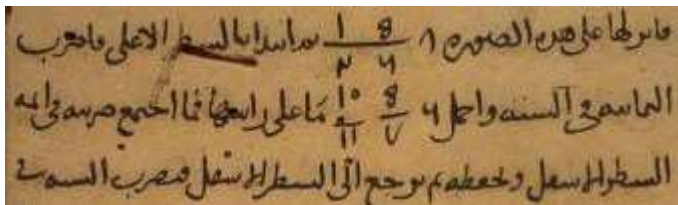 فانزلها على هذه الصورة بالسطر الاعلى فاضرب
الثمانية في الستة واحمل ما على راسها فما اجتمع ضربته في ايمة
السطر الاسفل وتحفظه ثم ترجع الى السطر الاسفل فتضرب الستة في